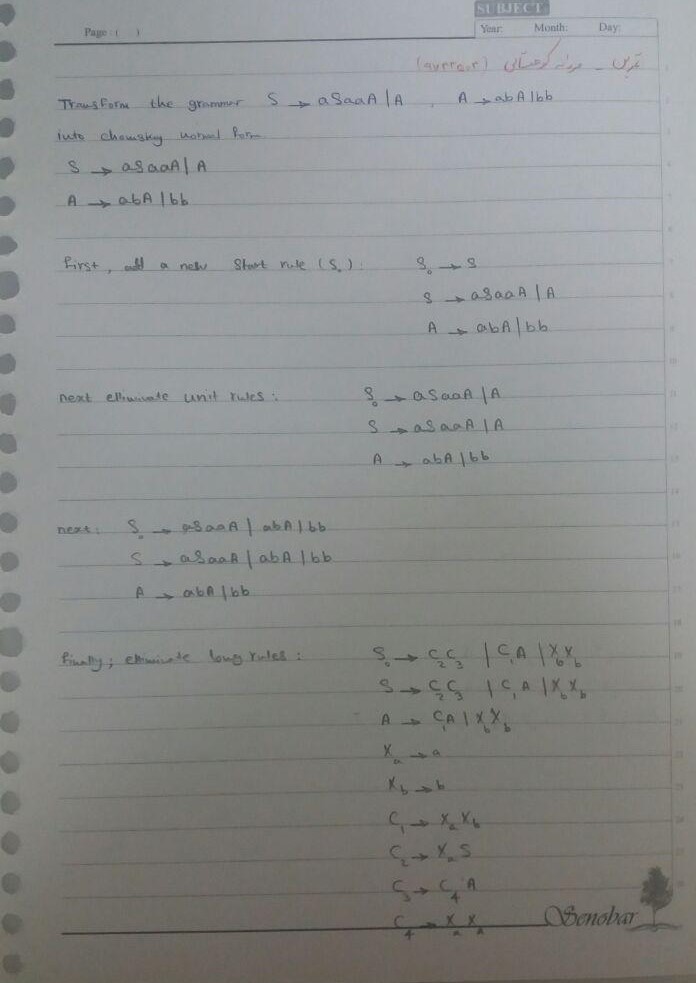 SUBJECT:
Page: ( )
Year: Month: Day:
تمرین - کوهستانی
Transform the grammar S → aSaaA | A , A → abA | bb
into chomsky normal form
S → aSaaA | A
A → abA | bb
First, add a new start rule (S₀): S₀ → S
S → aSaaA | A
A → abA | bb
next eliminate unit rules: S₀ → aSaaA | A
S → aSaaA | A
A → abA | bb
next: S₀ → aSaaA | abA | bb
S → aSaaA | abA | bb
A → abA | bb
finally; eliminate long rules: S₀ → C₂C₃ | C₁A | X_bX_b
S → C₂C₃ | C₁A | X_bX_b
A → C₁A | X_bX_b
Xₐ → a
X_b → b
C₁ → XₐX_b
C₂ → XₐS
C₃ → C₄A
C₄ → XₐXₐ
Senobar